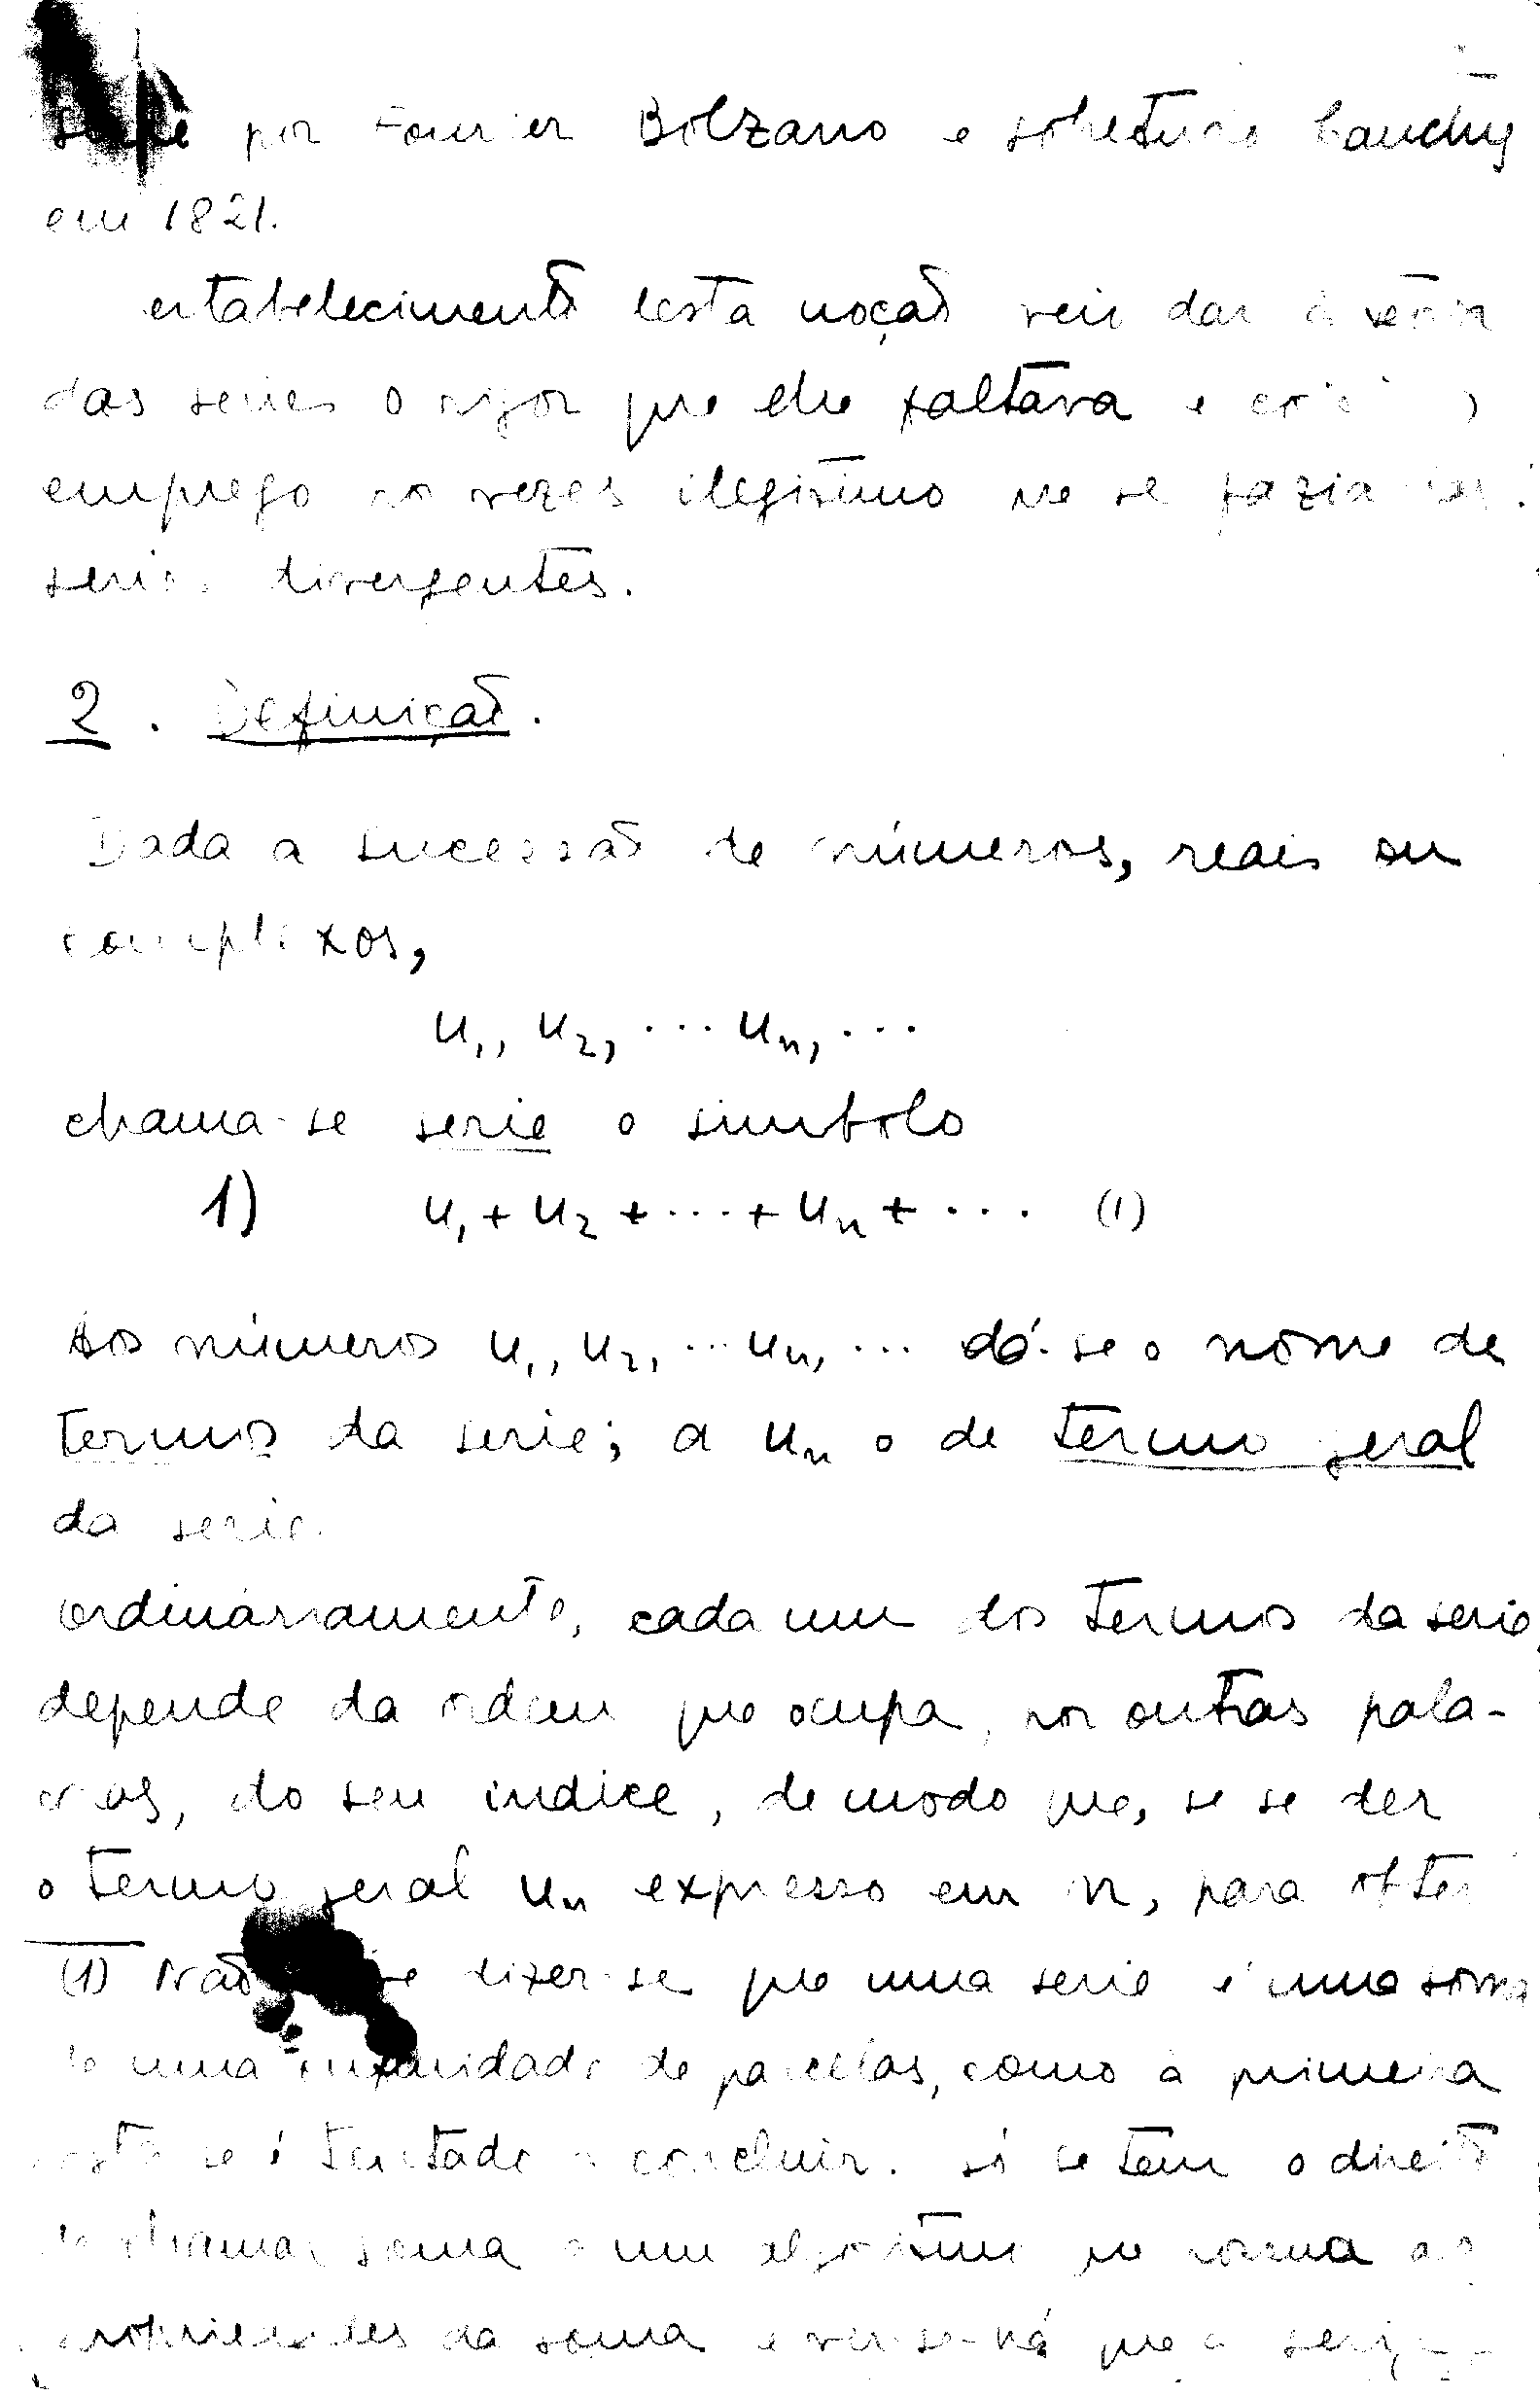 por Fourier Bolzano e sobretudo Cauchy
em 1821.
estabelecimento desta noção veio dar à teoria
das series o rigor que lhe faltava e
emprego às vezes ilegitimo que se fazia das
series divergentes.
2. Definição.
Dada a sucessão de números, reais ou
complexos,
u₁, u₂, ... uₙ, ...
chama-se serie o simbolo
1) u₁ + u₂ + ... + uₙ + ... (1)
Aos números u₁, u₂, ... uₙ, ... dá-se o nome de
termos da serie; a uₙ o de termo geral
da serie.
Ordináriamente, cada um dos termos da serie,
depende da ordem que ocupa, por outras pala-
vras, do seu indice, de modo que, se se der
o termo geral uₙ expresso em n, para obter
(1) Não dizer-se que uma serie é uma soma
de uma infinidade de parcelas, como à primeira
vista se é tentado a concluir. só se tem o direito
de chamar soma a um algoritmo que possua as
propriedades da soma e ver-se-há que a